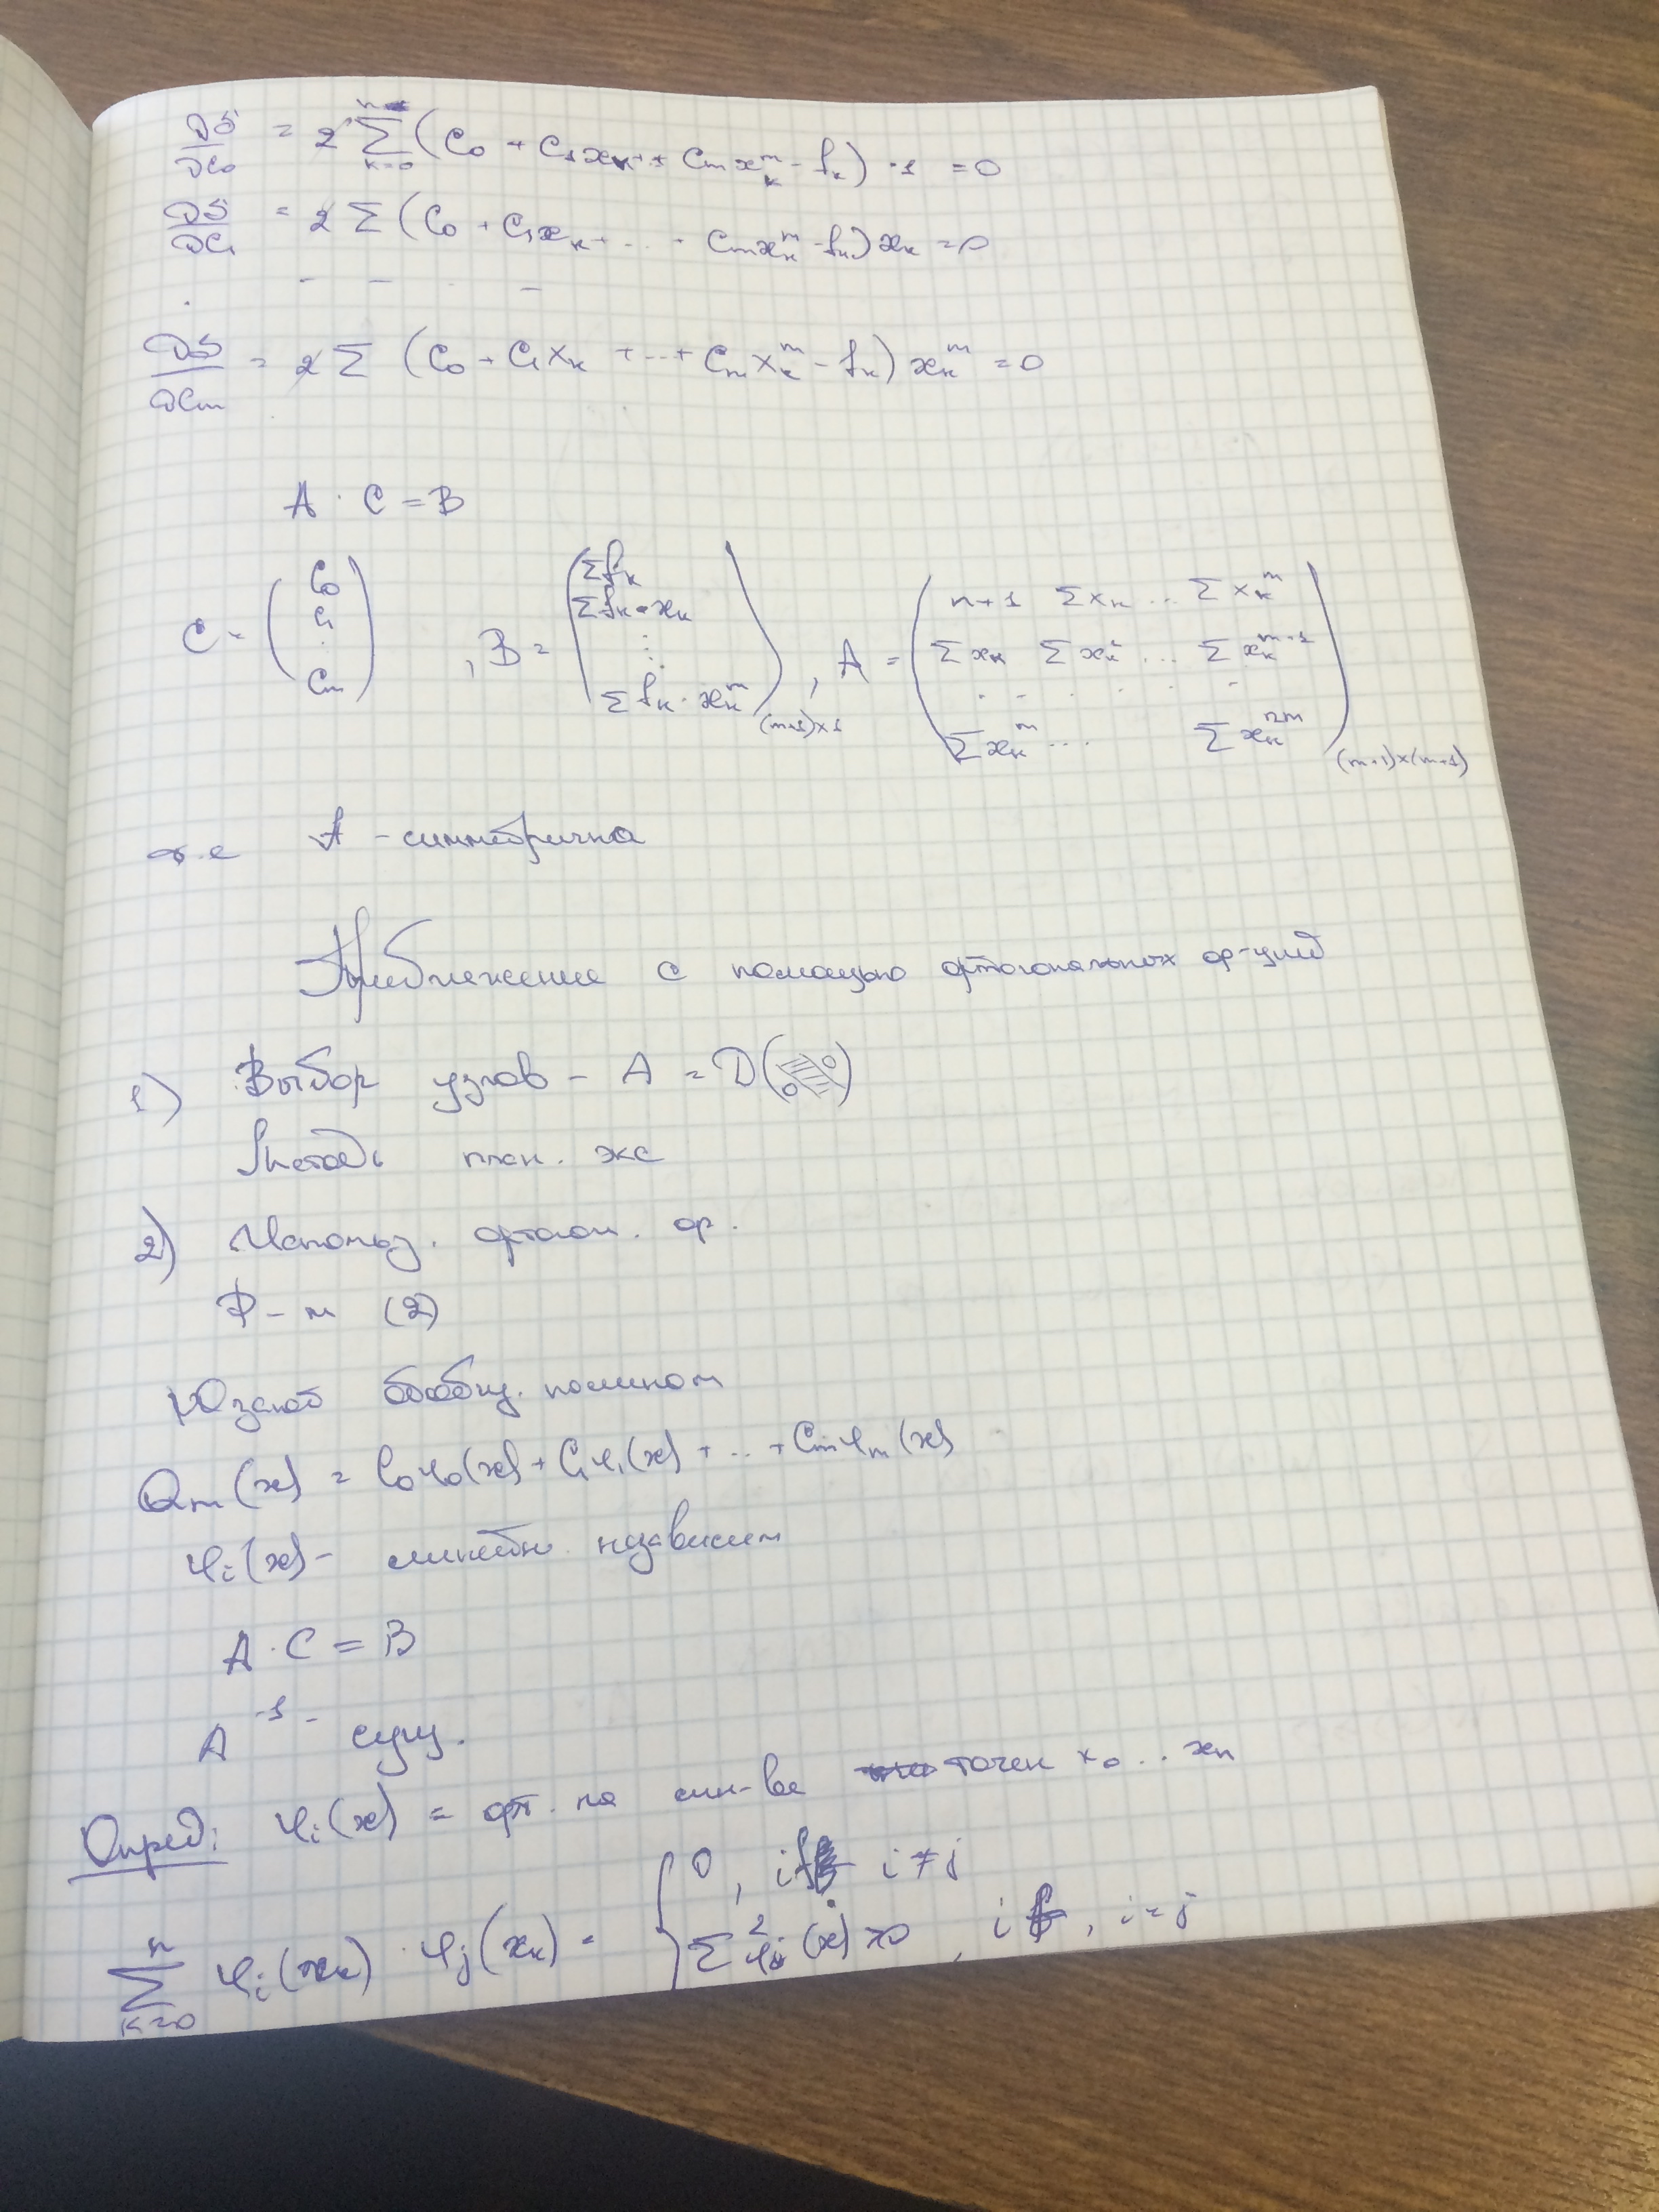 ∂S/∂C₀ = 2 Σ_{k=0}^{n} (C₀ + C₁x_k + + C_m x_k^m - f_k) · 1 = 0
∂S/∂C₁ = 2 Σ (C₀ + C₁x_k + ... + C_m x_k^m - f_k) x_k = 0
∂S/∂C_m = 2 Σ (C₀ + C₁x_k + ... + C_m x_k^m - f_k) x_k^m = 0
A · C = B
C = (C₀ C₁ ⋮ C_m), B = (Σf_k Σf_k·x_k ⋮ Σf_k·x_k^m)_{(m+1)×1}, A = (n+1 Σx_k ... Σx_k^m; Σx_k Σx_k² ... Σx_k^{m+1}; ... ; Σx_k^m ... Σx_k^{2m})_{(m+1)×(m+1)}
т.е A - симметрична
Приближение с помощью ортогональных ф-ций
1) Выбор узлов - A = D
Методы план. экс
2) Использ. ортогон. ф.
Ф-м (2)
Юзают обобщ. полином
Q_m(x) = C₀φ₀(x) + C₁φ₁(x) + ... + C_mφ_m(x)
φ_i(x) - линейно независим
A · C = B
A⁻¹ - сущ.
Опред: φ_i(x) = орт. на мн-ве точек x₀ ... x_n
Σ_{k=0}^{n} φ_i(x_k) · φ_j(x_k) = { 0, if i ≠ j ; Σφ_i²(x) > 0, if, i = j